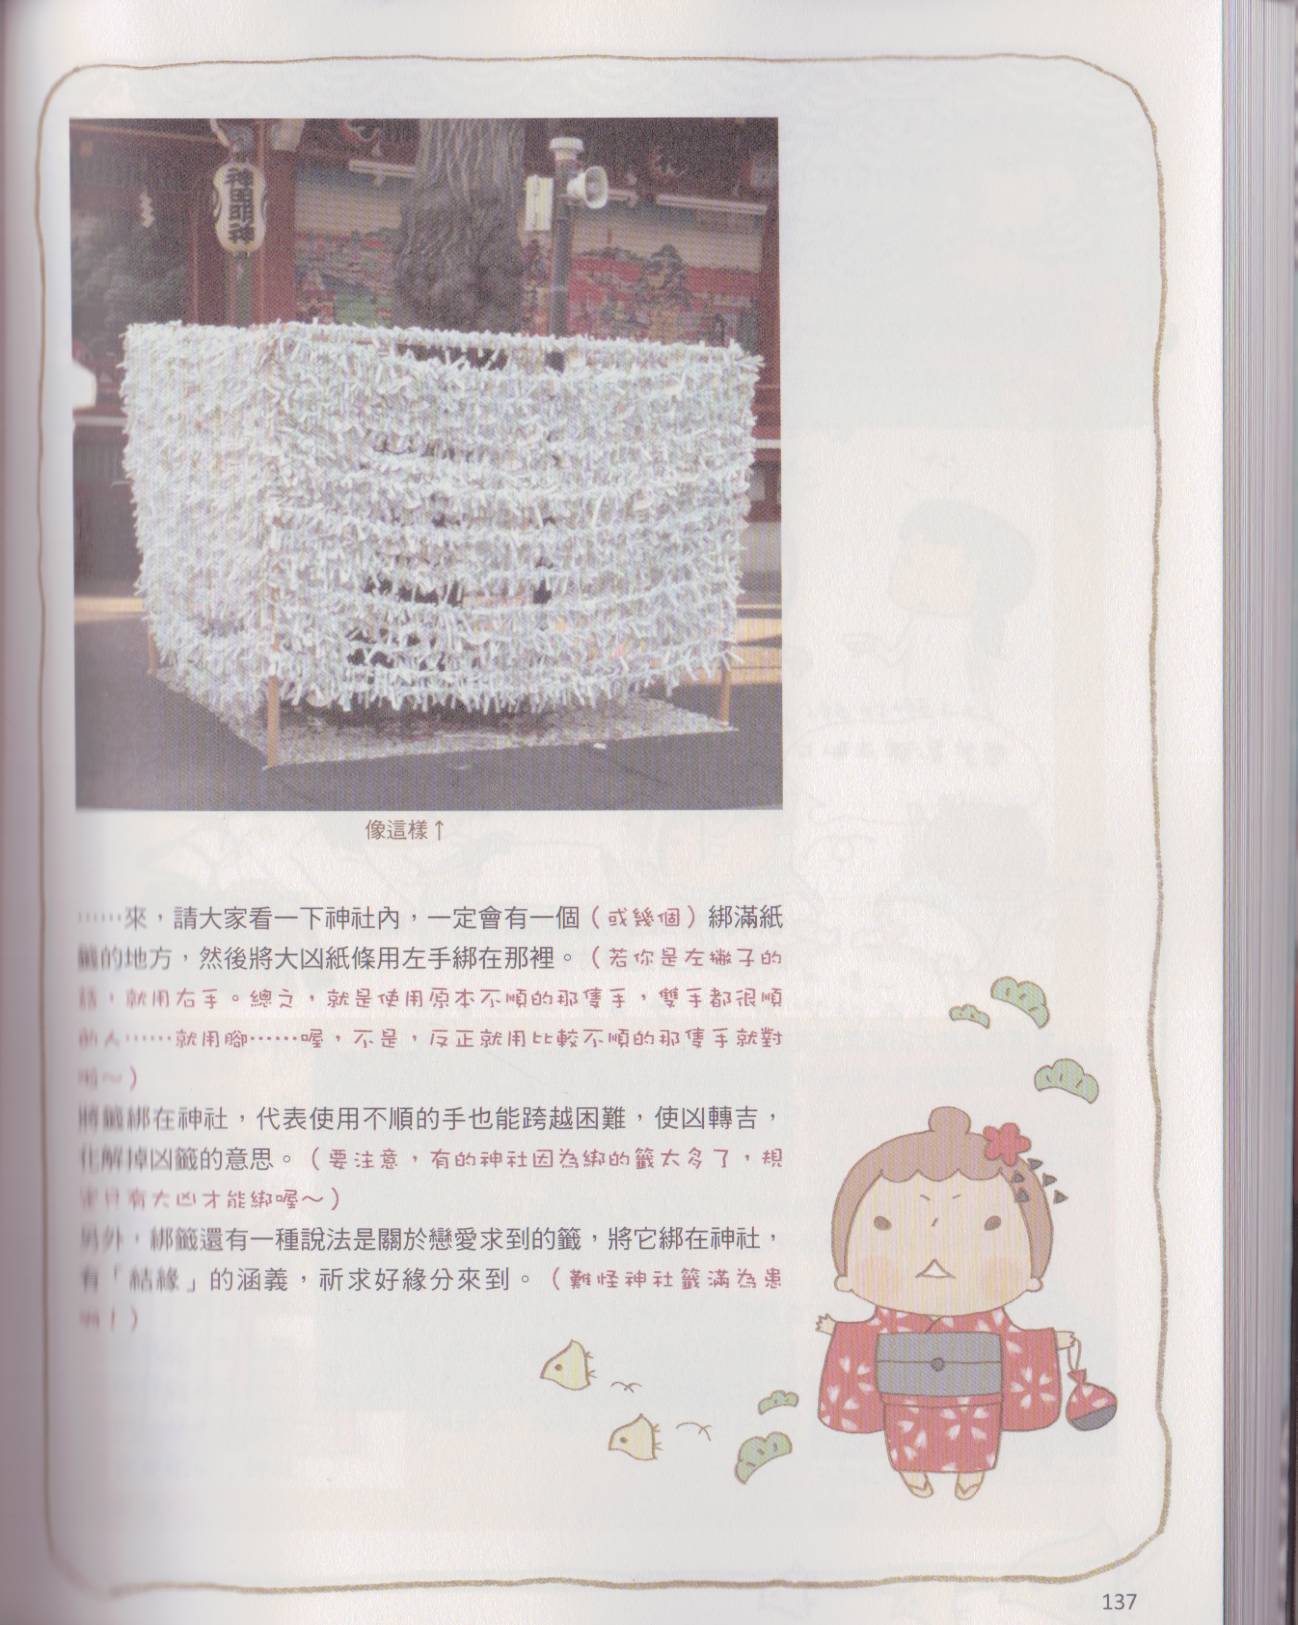 神田明神
像這樣↑
……來，請大家看一下神社內，一定會有一個（或幾個）綁滿紙
籤的地方，然後將大凶紙條用左手綁在那裡。（若你是左撇子的
話，就用右手。總之，就是使用原本不順的那隻手，雙手都很順
的人……就用腳……喔，不是，反正就用比較不順的那隻手就對
啦～）
將籤綁在神社，代表使用不順的手也能跨越困難，使凶轉吉，
化解掉凶籤的意思。（要注意，有的神社因為綁的籤太多了，規
定只有大凶才能綁喔～）
另外，綁籤還有一種說法是關於戀愛求到的籤，將它綁在神社，
有「結緣」的涵義，祈求好緣分來到。（難怪神社籤滿為患
！）
137